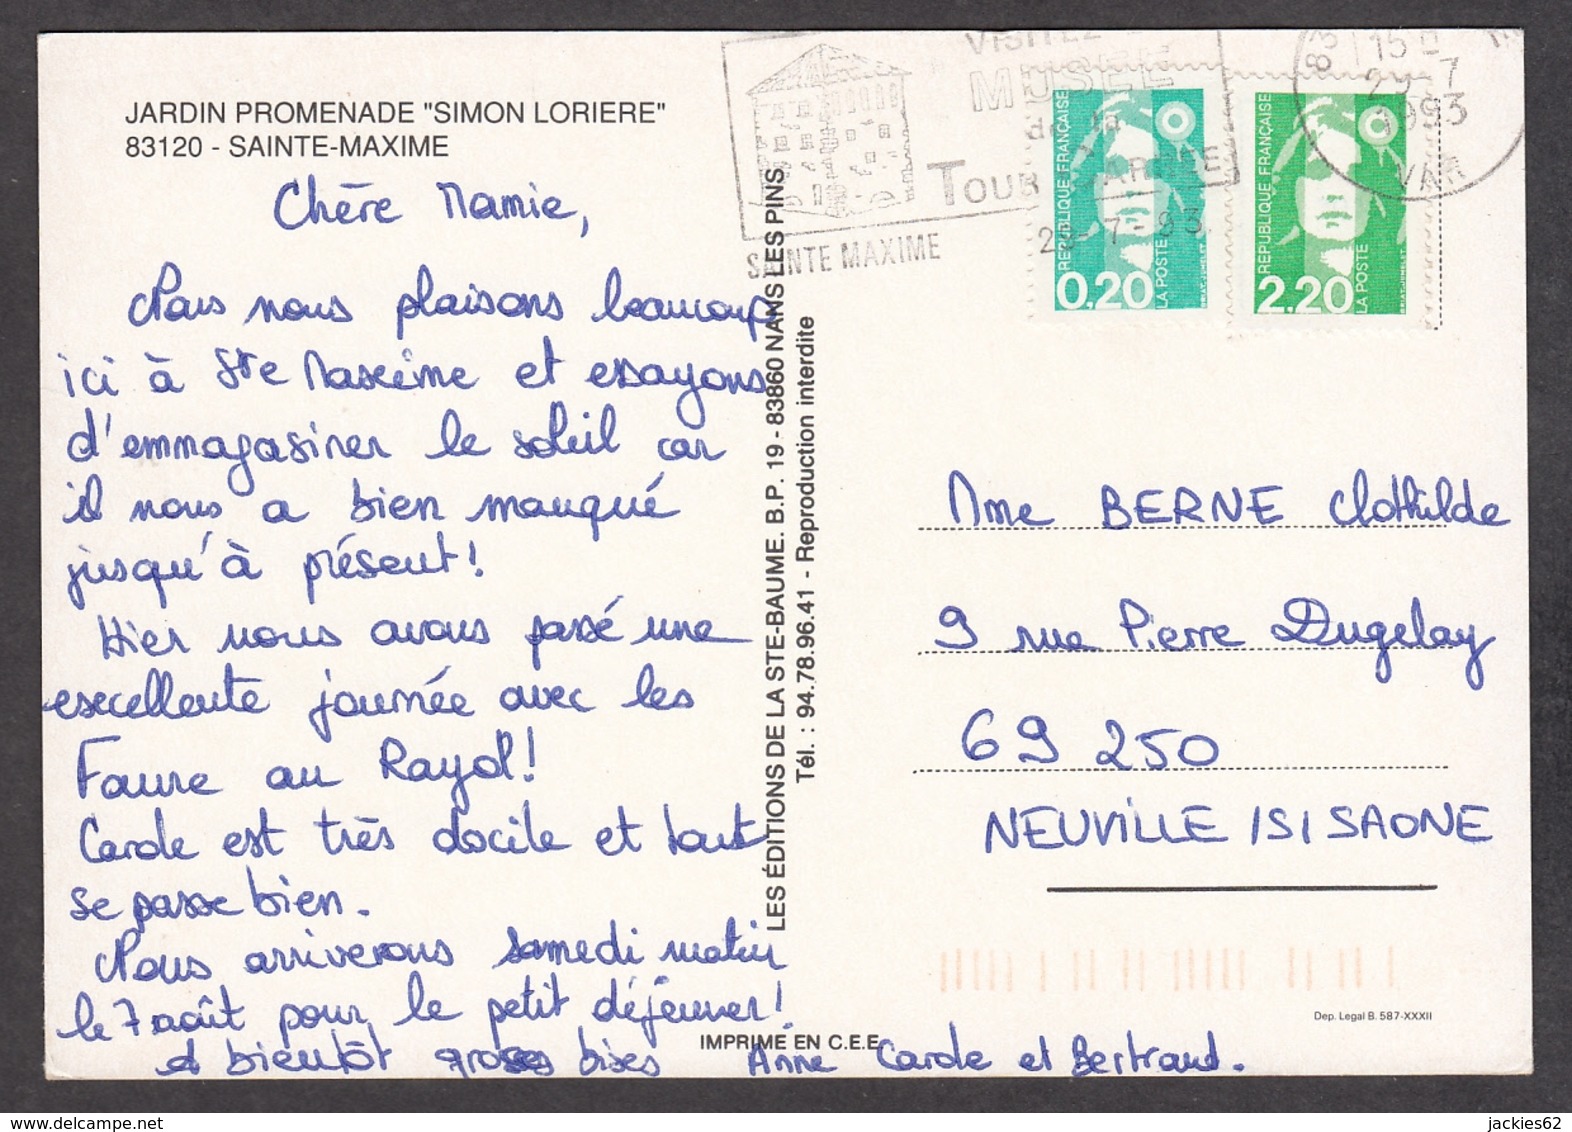 JARDIN PROMENADE "SIMON LORIERE"
83120 - SAINTE-MAXIME
Chère Mamie,
Nous nous plaisons beaucoup
ici à Ste Maxime et essayons
d'emmagasiner le soleil car
il nous a bien manqué
jusqu'à présent!
Hier nous avons passé une
excellente journée avec les
Faure au Rayol!
Carole est très docile et tout
se passe bien.
Nous arriverons samedi matin
le 7 août pour le petit déjeuner!
A bientôt grosses bises Anne Carole et Bertrand.
LES ÉDITIONS DE LA STE-BAUME. B.P. 19 - 83860 NANS LES PINS
Tél. : 94.78.96.41 - Reproduction interdite
IMPRIME EN C.E.E.
VISITEZ LE
MUSEE
de la
TOUR CARREE
SAINTE MAXIME
29-7-93
83
15 H
29-7
1993
VAR
RÉPUBLIQUE FRANÇAISE
0,20
LA POSTE
RÉPUBLIQUE FRANÇAISE
2,20
LA POSTE
Mme BERNE Clothilde
9 rue Pierre Dugelay
69 250
NEUVILLE /S/ SAONE
Dep. Legal B. 587-XXXII
jackies62